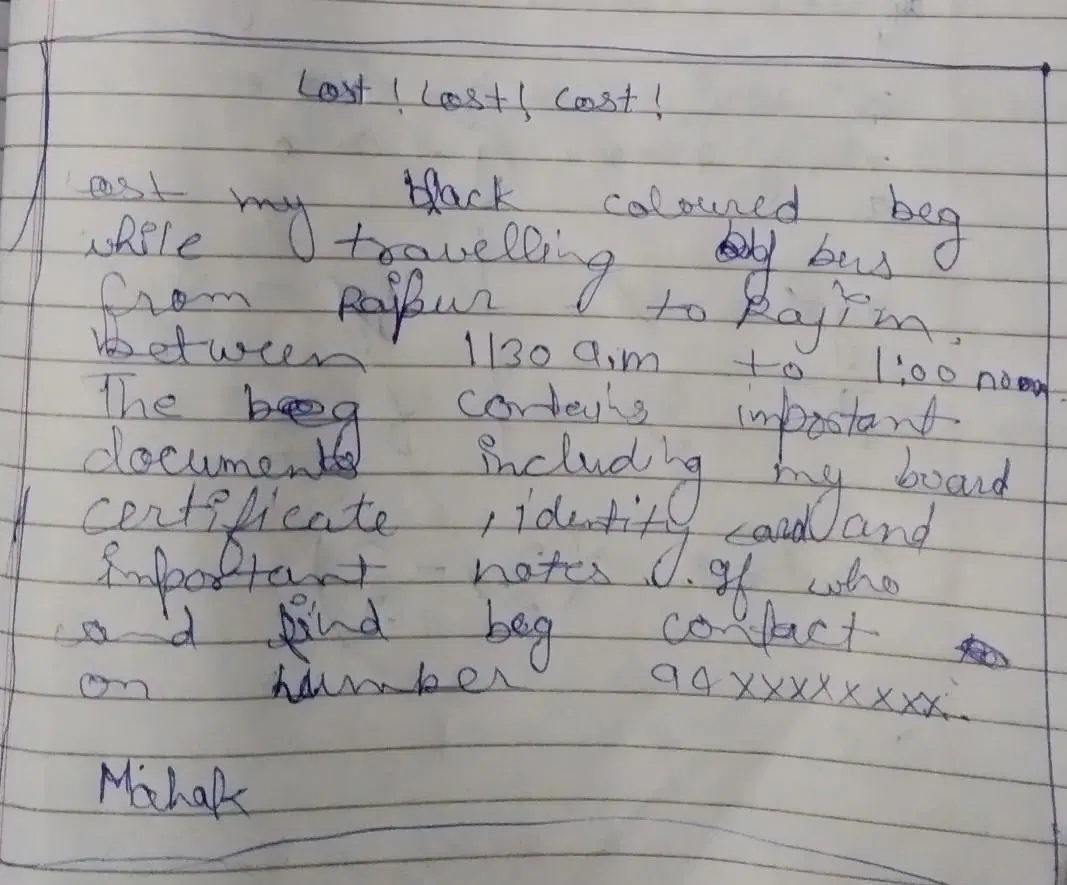 Lost ! Lost ! Lost !
Lost my black coloured beg
while travelling by bus
from Raipur to Rajim,
between 1130 a.m to 1:00 noon.
The beg conteins important
documents including my board
certificate , identity card and
important notes . If who
and find beg contact
on number 94xxxxxxxx.
Mahak